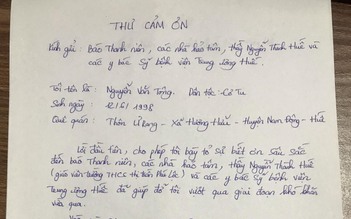 THƯ CẢM ƠN
Kính gửi: Báo Thanh niên, các nhà hảo tâm, thầy Nguyễn Thanh Huế và
các y bác sỹ bệnh viện Trung ương Huế.
Tôi tên là: Nguyễn Văn Tông. Dân tộc: Cơ Tu
Sinh ngày: 1998
Quê quán: Thôn - Xã Hương Hữu - Huyện Nam Đông - Huế
Lời đầu tiên, cho phép tôi bày tỏ sự biết ơn sâu sắc
đến báo Thanh niên, các nhà hảo tâm, thầy Nguyễn Thanh Huế
(giáo viên trường THCS thị trấn Phú Lộc) và các y bác sỹ bệnh viện
Trung ương Huế đã giúp đỡ tôi vượt qua giai đoạn khó khăn
vừa qua.